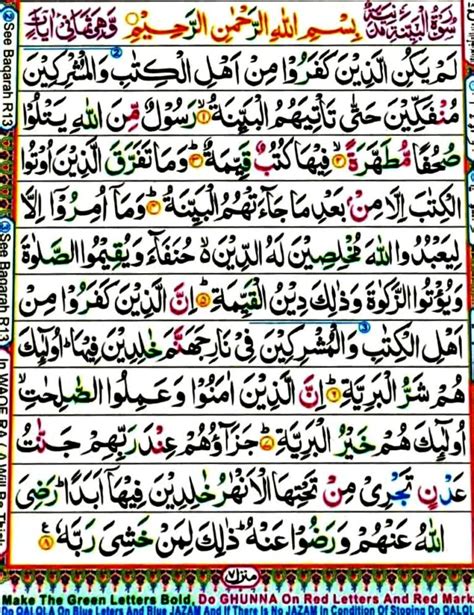 سُوْرَةُ الْبَيِّنَةِ مَدَنِيَّةٌ بِسْمِ اللهِ الرَّحْمٰنِ الرَّحِيْمِ وَّهِيَ ثَمَانِيْ اٰيَاتٍ
لَمْ يَكُنِ الَّذِيْنَ كَفَرُوْا مِنْ اَهْلِ الْكِتٰبِ وَالْمُشْرِكِيْنَ
مُنْفَكِّيْنَ حَتّٰى تَاْتِيَهُمُ الْبَيِّنَةُ ۙ‏﴿۱﴾ رَسُوْلٌ مِّنَ اللهِ يَتْلُوْا
صُحُفًا مُّطَهَّرَةً ۙ‏﴿۲﴾ فِيْهَا كُتُبٌ قَيِّمَةٌ ؕ‏﴿۳﴾ وَمَا تَفَرَّقَ الَّذِيْنَ اُوْتُوا
الْكِتٰبَ اِلَّا مِنْۢ بَعْدِ مَا جَآءَتْهُمُ الْبَيِّنَةُ ؕ‏﴿۴﴾ وَمَاۤ اُمِرُوْۤا اِلَّا
لِيَعْبُدُوا اللهَ مُخْلِصِيْنَ لَهُ الدِّيْنَ ۙ حُنَفَآءَ وَيُقِيْمُوا الصَّلٰوةَ
وَيُؤْتُوا الزَّكٰوةَ وَذٰلِكَ دِيْنُ الْقَيِّمَةِ ؕ‏﴿۵﴾ اِنَّ الَّذِيْنَ كَفَرُوْا مِنْ
اَهْلِ الْكِتٰبِ وَالْمُشْرِكِيْنَ فِيْ نَارِ جَهَنَّمَ خٰلِدِيْنَ فِيْهَا ؕ اُولٰٓئِكَ
هُمْ شَرُّ الْبَرِيَّةِ ؕ‏﴿۶﴾ اِنَّ الَّذِيْنَ اٰمَنُوْا وَعَمِلُوا الصّٰلِحٰتِ ۙ
اُولٰٓئِكَ هُمْ خَيْرُ الْبَرِيَّةِ ؕ‏﴿۷﴾ جَزَآؤُهُمْ عِنْدَ رَبِّهِمْ جَنّٰتُ
عَدْنٍ تَجْرِيْ مِنْ تَحْتِهَا الْاَنْهٰرُ خٰلِدِيْنَ فِيْهَاۤ اَبَدًا ؕ رَضِيَ
اللهُ عَنْهُمْ وَرَضُوْا عَنْهُ ؕ ذٰلِكَ لِمَنْ خَشِيَ رَبَّهٗ ‏﴿۸﴾
منزل ۷
Make The Green Letters Bold, Do GHUNNA On Red Letters And Red Mark
Do QALQLA On Blue Leters And Blue JAZAM And If There Is No JAZAM In Condition Of Stoping Do Qal
② See Baqarah R13
③ See Baqarah R13